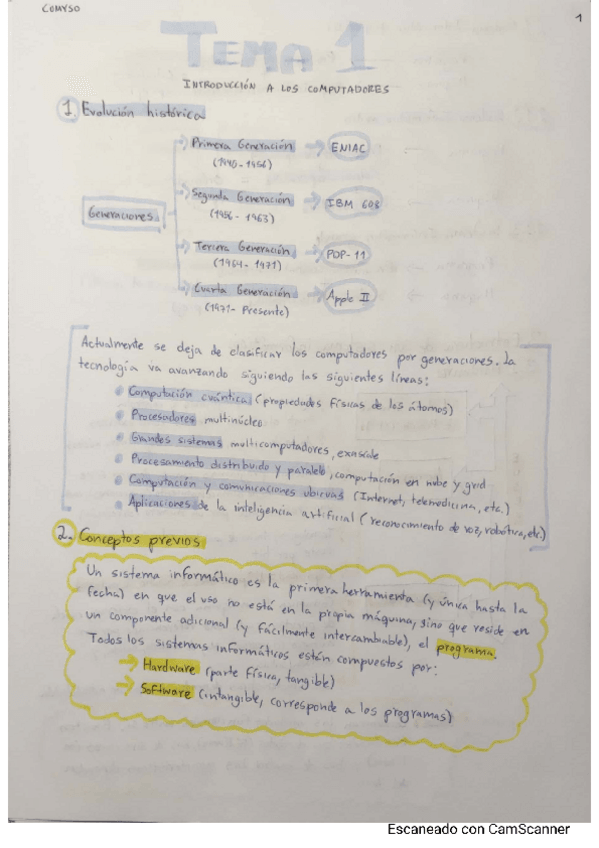 COMYSO
1
TEMA 1
INTRODUCCIÓN A LOS COMPUTADORES
1. Evolución histórica
Generaciones
Primera Generación → ENIAC
(1945-1956)
Segunda Generación → IBM 608
(1956 - 1963)
Tercera Generación → PDP-11
(1964 - 1971)
Cuarta Generación → Apple II
(1971- Presente)
Actualmente se deja de clasificar los computadores por generaciones. La
tecnología va avanzando siguiendo las siguientes líneas:
Computación cuántica (propiedades físicas de los átomos)
Procesadores multinúcleo
Grandes sistemas multicomputadores, exascale
Procesamiento distribuido y paralelo, computación en nube y grid
Computación y comunicaciones ubicuas (Internet, telemedicina, etc.)
Aplicaciones de la inteligencia artificial (reconocimiento de voz, robótica, etc)
2. Conceptos previos
Un sistema informático es la primera herramienta (y única hasta la
fecha) en que el uso no está en la propia máquina, sino que reside en
un componente adicional (y fácilmente intercambiable), el programa.
Todos los sistemas informáticos están compuestos por:
→ Hardware (parte física, tangible)
→ Software (intangible, corresponde a los programas)
Escaneado con CamScanner